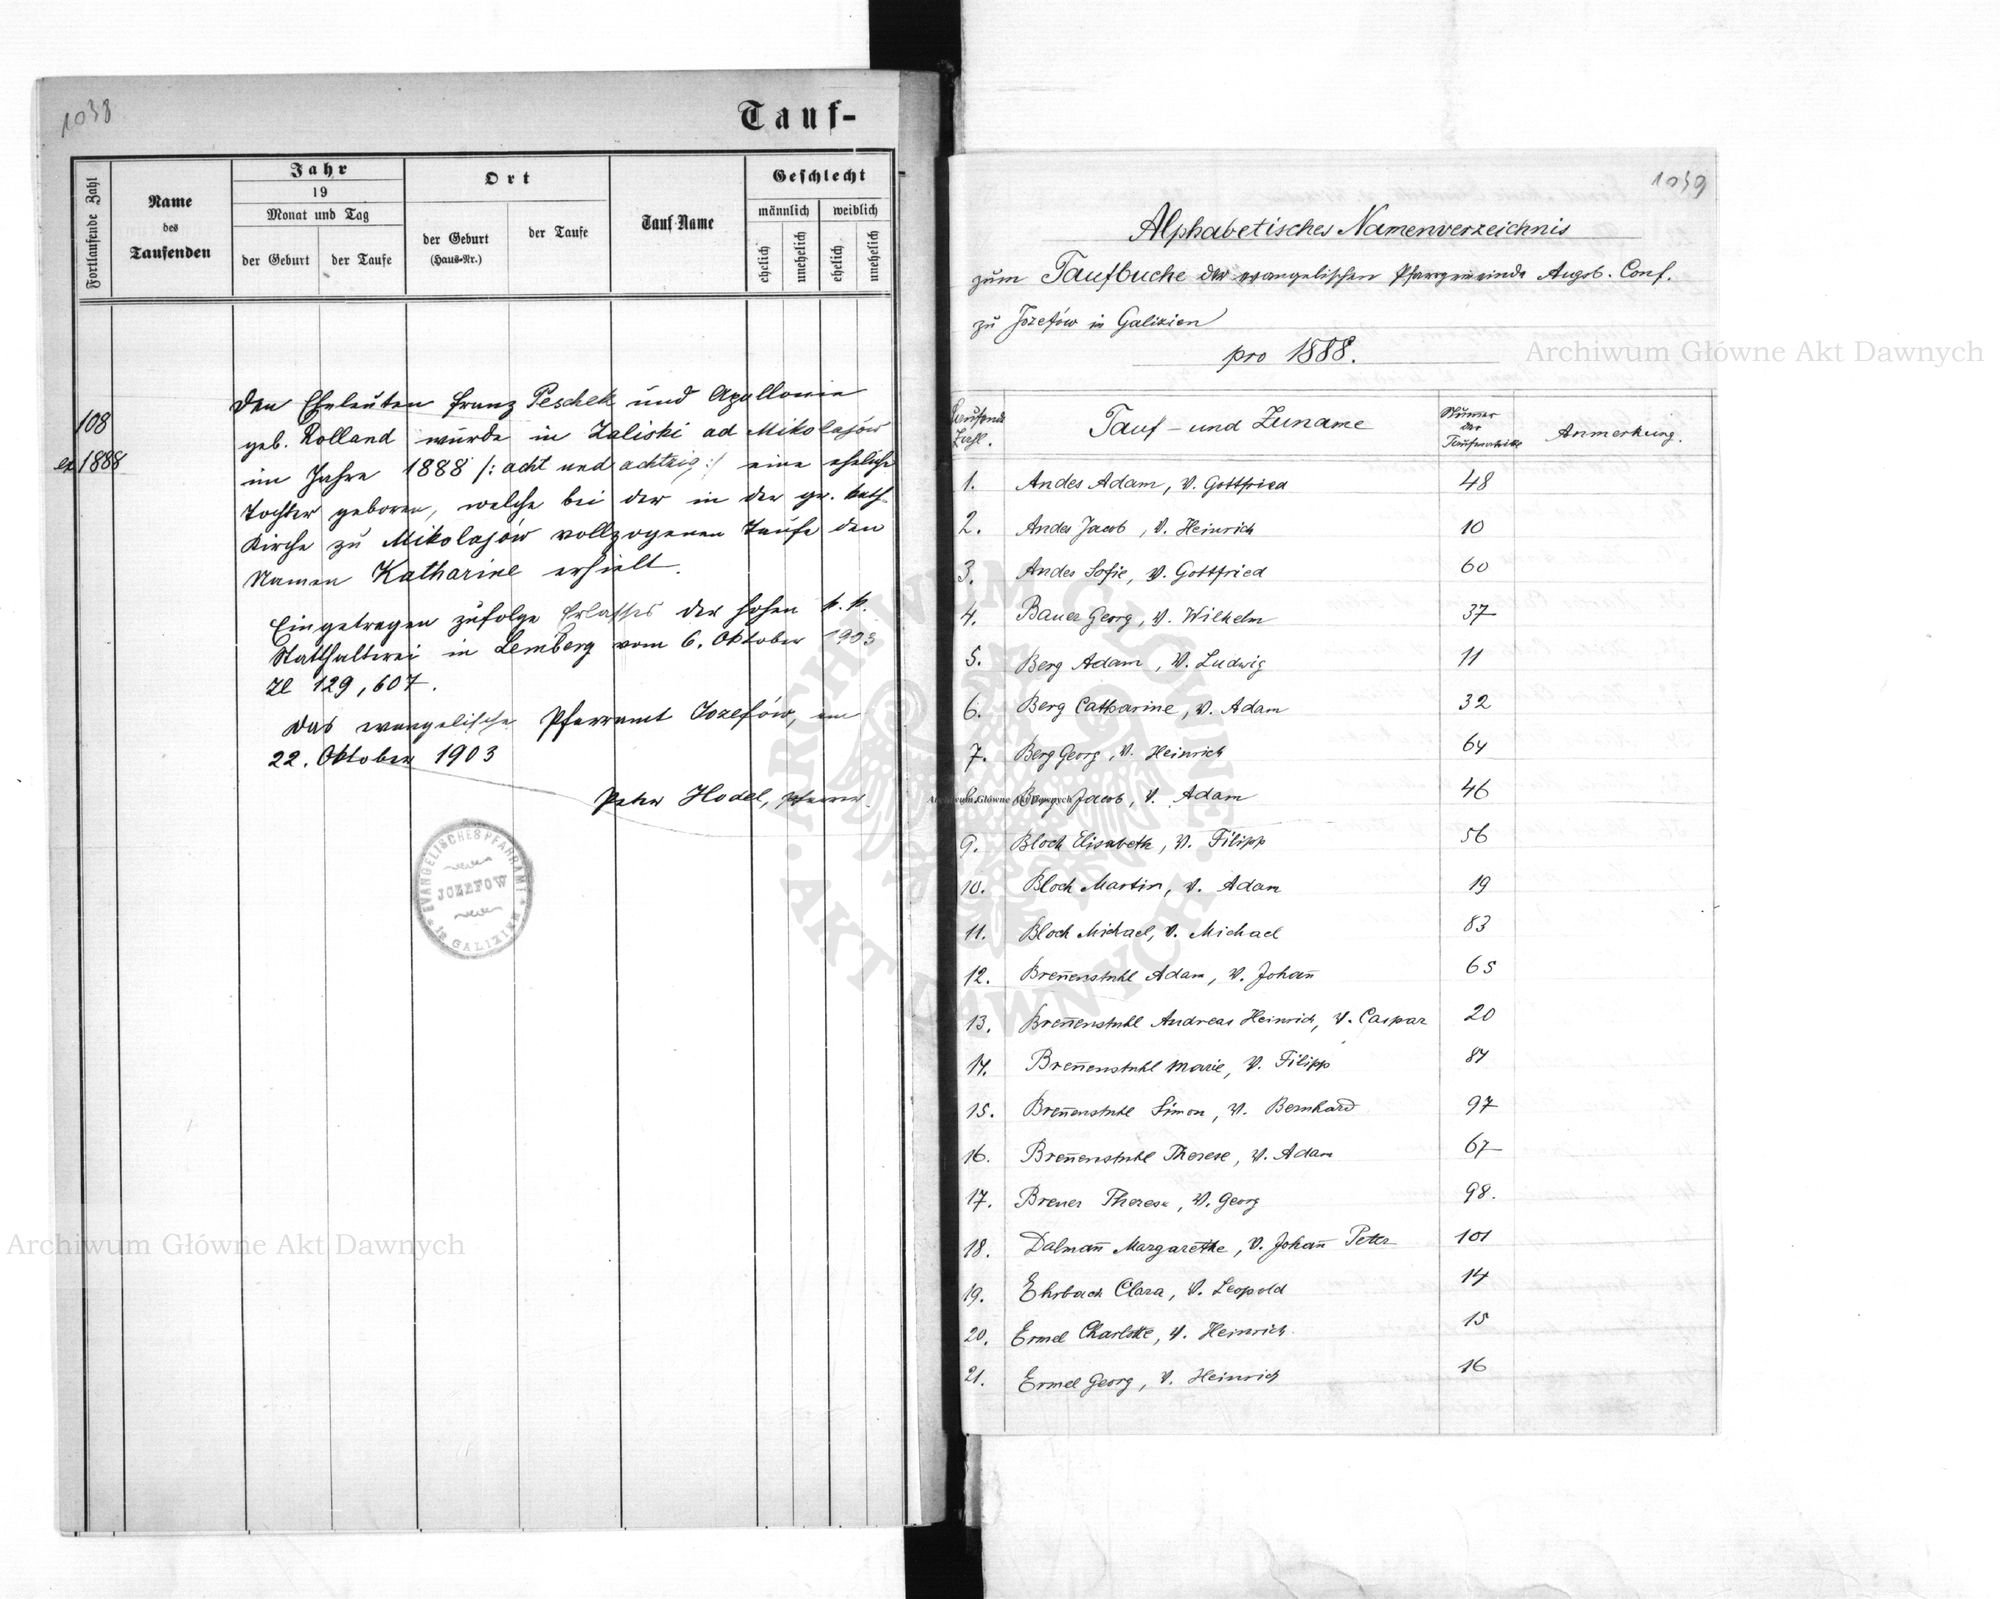 1038
Tauf-
Fortlaufende Zahl
Name
des
Taufenden
Jahr
19
Monat und Tag
der Geburt
der Taufe
Ort
der Geburt
(Haus-Nr.)
der Taufe
Tauf-Name
Geschlecht
männlich
weiblich
ehelich
unehelich
ehelich
unehelich
108
ex 1888
Den Eheleuten Franz Peschek und Apollonia
geb. Rolland wurde in Zaliski ad Mikolajów
im Jahre 1888 /: acht und achtzig :/ eine eheliche
Tochter geboren, welche bei der in der gr. kath.
Kirche zu Mikolajów vollzogenen Taufe den
Namen Katharine erhielt.
Eingetragen zufolge Erlasses der hohen k. k.
Statthalterei in Lemberg vom 6. Oktober 1903
Zl 129,607.
Das evangelische Pfarramt Jozefów, am
22. Oktober 1903
Peter Hodel, Pfarrer.
EVANGELISCHES PFARRAMT
JOZEFOW
IN GALIZIEN
1039
Alphabetisches Namenverzeichnis
zum Taufbuche der evangelischen Pfarrgemeinde Augsb. Conf.
zu Jozefów in Galizien
pro 1888.
Laufende Zahl.
Tauf- und Zuname
Numer der Taufmatrikel
Anmerkung.
1. Andes Adam, v. Gottfried 48
2. Andes Jacob, v. Heinrich 10
3. Andes Sofie, v. Gottfried 60
4. Bauer Georg, v. Wilhelm 37
5. Berg Adam, v. Ludwig 11
6. Berg Catharine, v. Adam 32
7. Berg Georg, v. Heinrich 64
8. Berg Jacob, v. Adam 46
9. Bloch Elisabeth, v. Filipp 56
10. Bloch Martin, v. Adam 19
11. Bloch Michael, v. Michael 83
12. Breñenstuhl Adam, v. Johañ 65
13. Breñenstuhl Andreas Heinrich, v. Caspar 20
14. Breñenstuhl Marie, v. Filipp 84
15. Breñenstuhl Simon, v. Bernhard 97
16. Breñenstuhl Therese, v. Adam 67
17. Brener Therese, v. Georg 98.
18. Dalmañ Margarethe, v. Johañ Peter 101
19. Ehrbach Clara, v. Leopold 14
20. Ermel Charlotte, v. Heinrich 15
21. Ermel Georg, v. Heinrich 16
Archiwum Główne Akt Dawnych
Archiwum Główne Akt Dawnych
Archiwum Główne Akt Dawnych
ARCHIWUM GŁÓWNE · AKT DAWNYCH ·